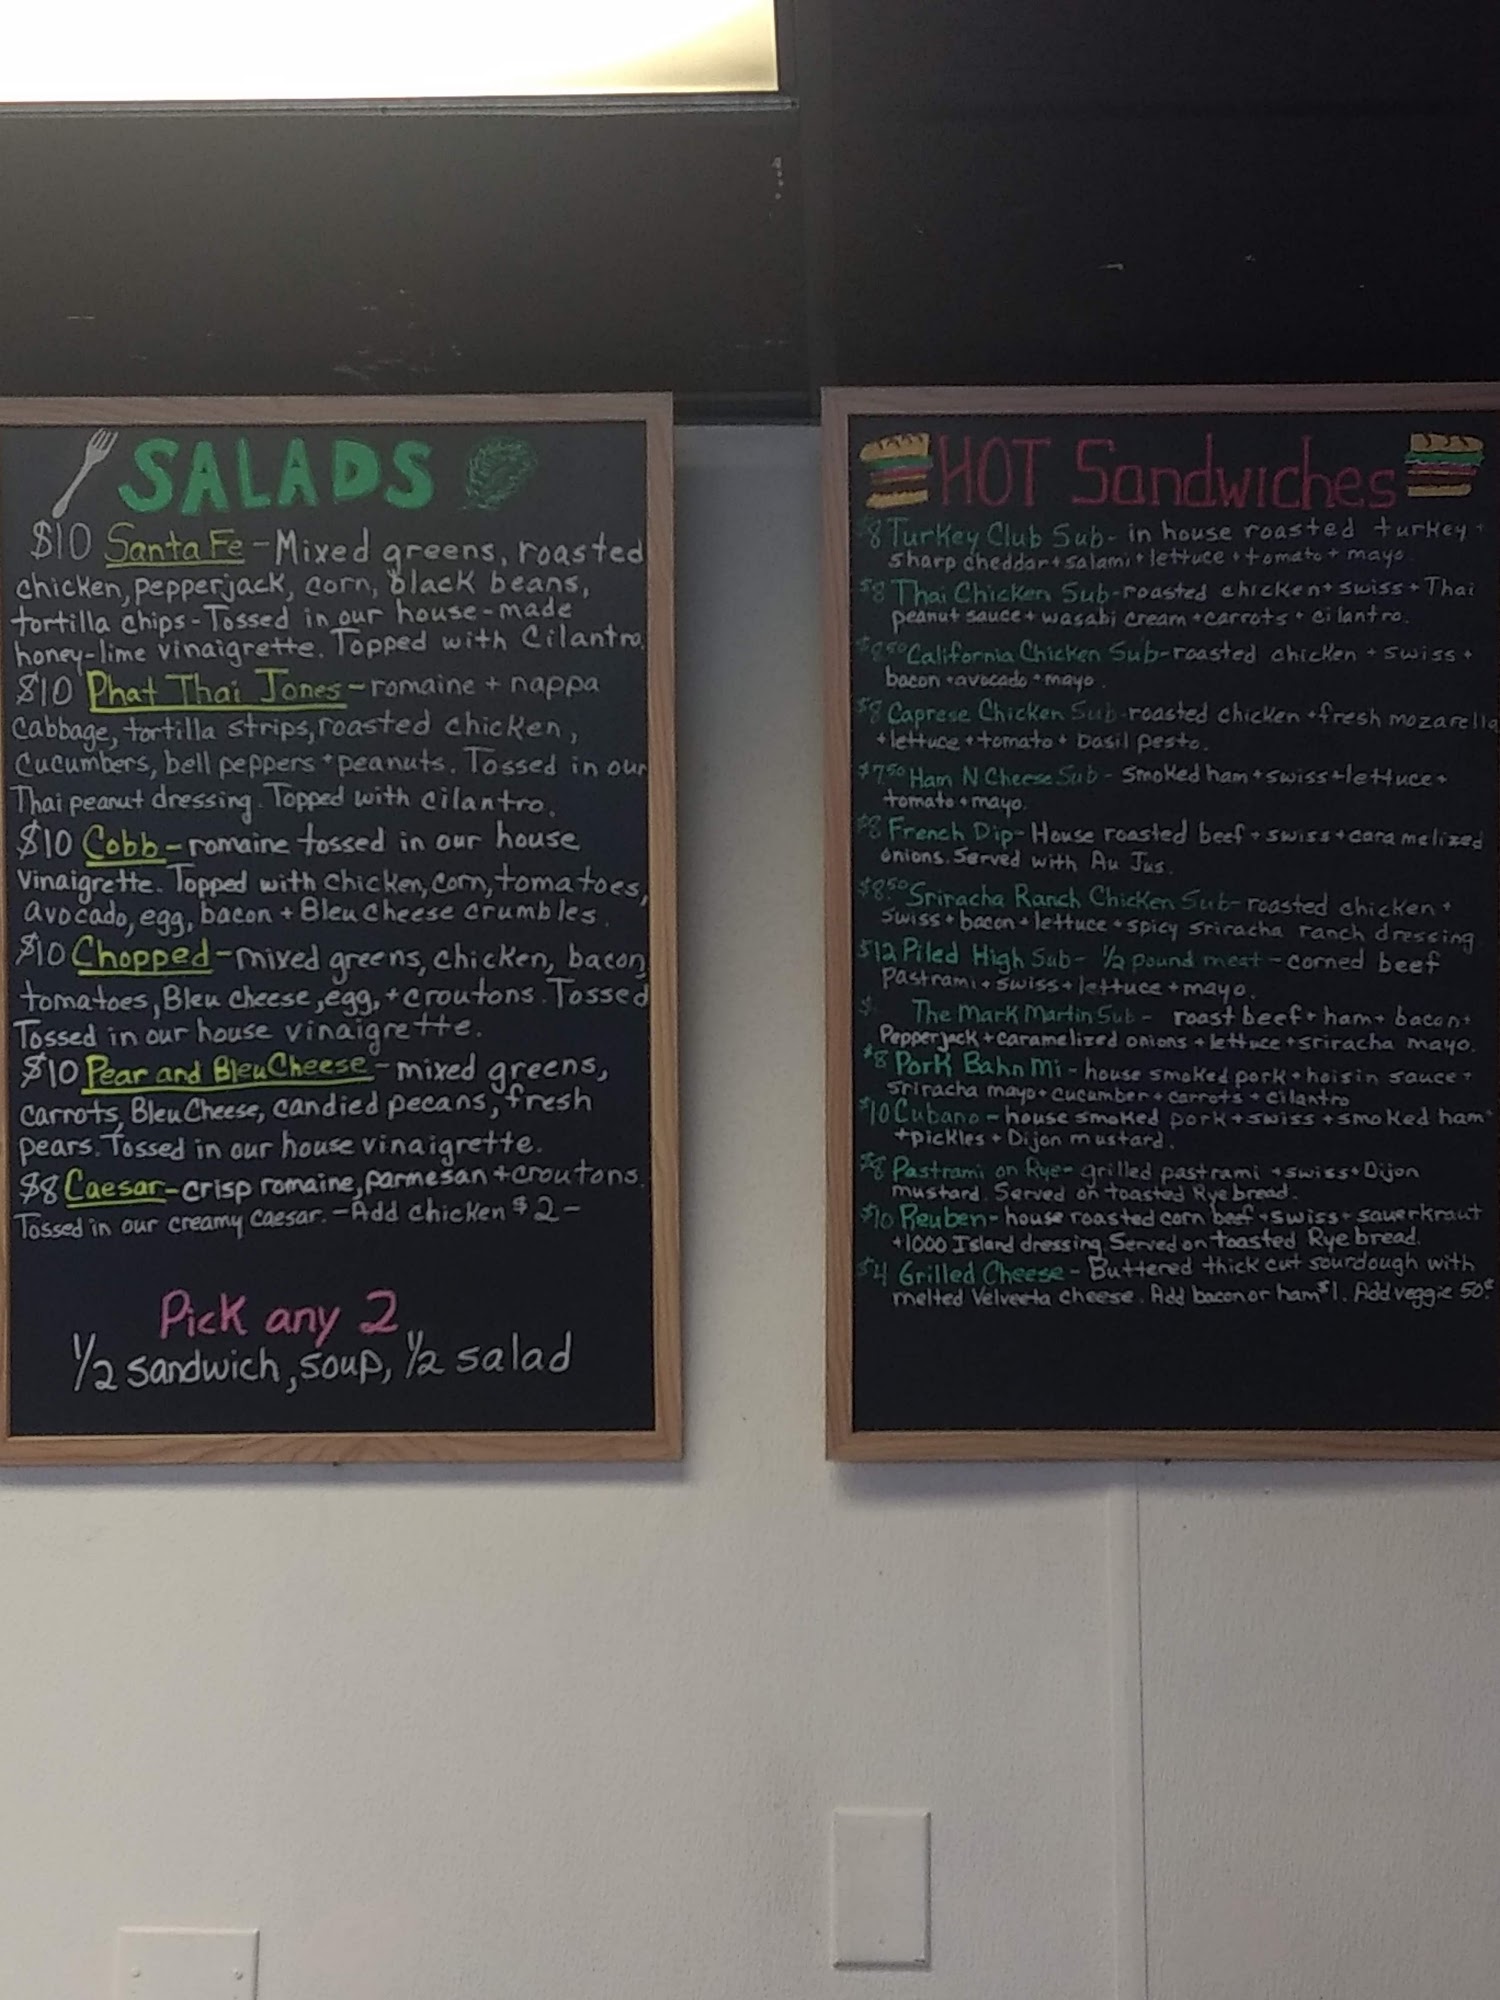 SALADS
$10 Santa Fe - Mixed greens, roasted
chicken, pepperjack, corn, black beans,
tortilla chips - Tossed in our house-made
honey-lime vinaigrette. Topped with Cilantro.
$10 Phat Thai Jones - romaine + nappa
Cabbage, tortilla strips, roasted chicken,
Cucumbers, bell peppers + peanuts. Tossed in our
Thai peanut dressing. Topped with cilantro.
$10 Cobb - romaine tossed in our house
Vinaigrette. Topped with chicken, corn, tomatoes,
avocado, egg, bacon + Bleu Cheese crumbles.
$10 Chopped - mixed greens, chicken, bacon,
tomatoes, Bleu cheese, egg, + croutons. Tossed
Tossed in our house vinaigrette.
$10 Pear and Bleu Cheese - mixed greens,
carrots, Bleu Cheese, candied pecans, fresh
pears. Tossed in our house vinaigrette.
$8 Caesar - crisp romaine, parmesan + croutons.
Tossed in our creamy caesar. - Add chicken $2 -
Pick any 2
1/2 sandwich, soup, 1/2 salad
HOT Sandwiches
$8 Turkey Club Sub - in house roasted turkey +
sharp cheddar + salami + lettuce + tomato + mayo.
$8 Thai Chicken Sub - roasted chicken + swiss + Thai
peanut sauce + wasabi cream + carrots + cilantro.
$8.50 California Chicken Sub - roasted chicken + swiss +
bacon + avocado + mayo.
$8 Caprese Chicken Sub - roasted chicken + fresh mozarella
+ lettuce + tomato + basil pesto.
$7.50 Ham N Cheese Sub - smoked ham + swiss + lettuce +
tomato + mayo.
$8 French Dip - House roasted beef + swiss + caramelized
onions. Served with Au Jus.
$8.50 Sriracha Ranch Chicken Sub - roasted chicken +
swiss + bacon + lettuce + spicy sriracha ranch dressing
$12 Piled High Sub - 1/2 pound meat - corned beef
Pastrami + swiss + lettuce + mayo.
$ The Mark Martin Sub - roast beef + ham + bacon +
Pepperjack + caramelized onions + lettuce + sriracha mayo.
$8 Pork Bahn Mi - house smoked pork + hoisin sauce +
sriracha mayo + cucumber + carrots + cilantro
$10 Cubano - house smoked pork + swiss + smoked ham +
+ pickles + Dijon mustard.
$8 Pastrami on Rye - grilled pastrami + swiss + Dijon
mustard. Served on toasted Rye bread.
$10 Reuben - house roasted corn beef + swiss + sauerkraut
+ 1000 Island dressing Served on toasted Rye bread.
$4 Grilled Cheese - Buttered thick cut sourdough with
melted Velveeta cheese. Add bacon or ham $1. Add veggie 50¢